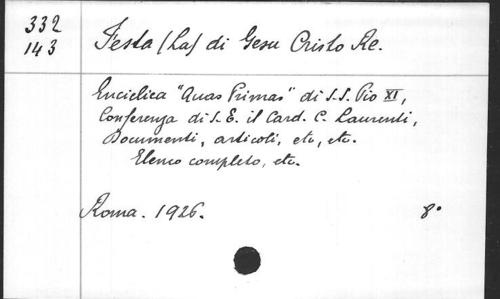 332
143
Festa (La) di Gesu Cristo Re.
Enciclica "Quas Primas" di S.S. Pio XI,
Conferenza di S. E. il Card. C. Laurenti,
Documenti, articoli, etc, etc.
Elenco completo, etc.
Roma. 1926. 8°